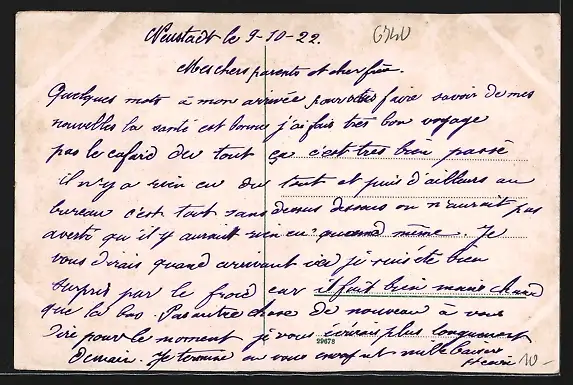 Neustadt le 9-10-22.
6340
Mes chers parents et cher frère.
Quelques mots à mon arrivée pour vous faire savoir de mes
nouvelles la santé est bonne j'ai fais très bon voyage
pas le cafard du tout ça c'est très bien passé
il n'y a rien eu du tout et puis d'ailleurs au
bureau c'est tout sans dessus dessous on n'aurait pas
averti qu'il y aurait rien eu quand même. Je
vous dirais quand arrivant ici j'ai été bien
surpris par le froid car il fait bien moins chaud
que là bas. Pas autre chose de nouveau à vous
dire pour le moment je vous écrirais plus longuement
demain. Je termine en vous envoyant mille baisers
Henri
29678
10-